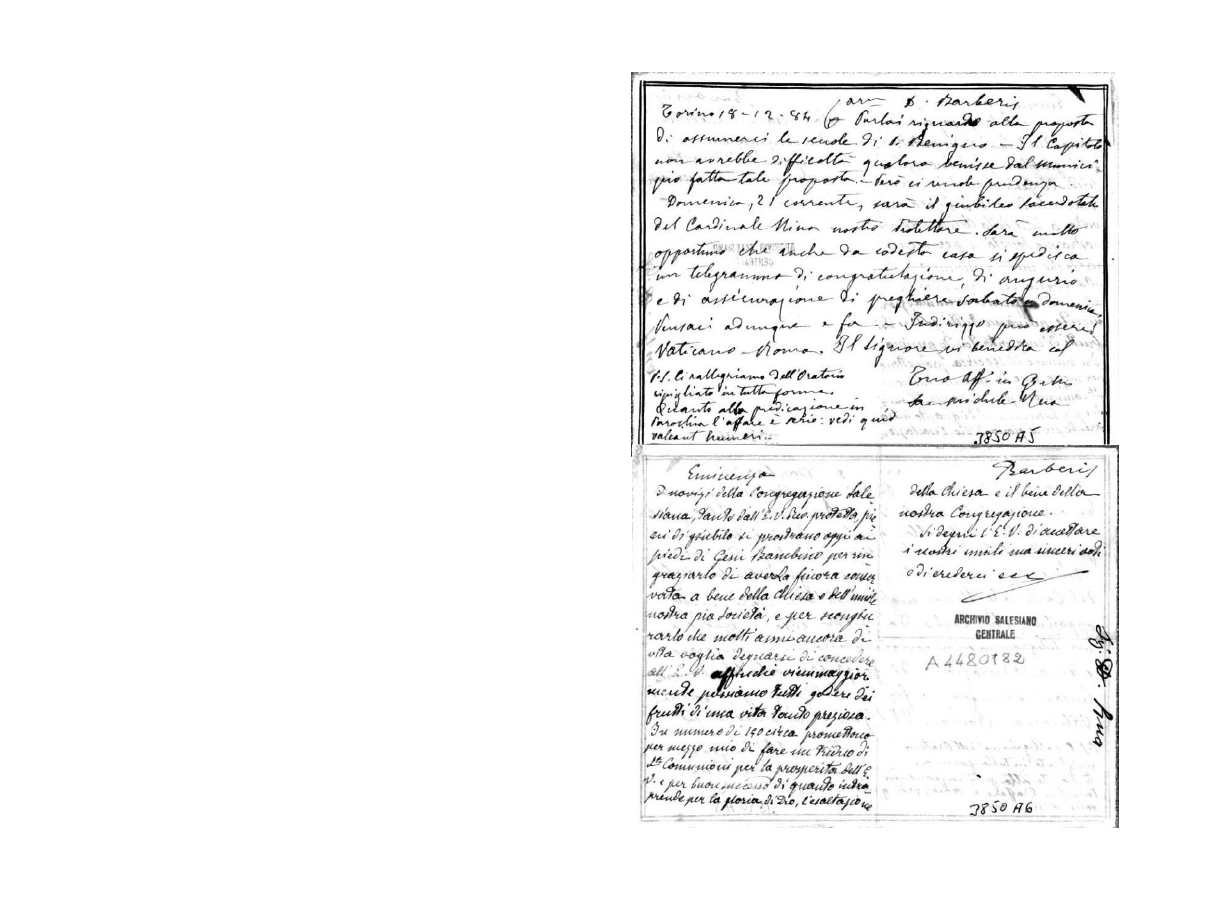 Torino 18-12-84
Car D. Barberis
Parlai riguardo alla proposta
di assumerci le scuole di S. Benigno - Il Capitolo
non avrebbe difficoltà qualora venisse dal munici-
pio fatta tale proposta. - Però ci vuole prudenza
Domenica, 21 corrente, sarà il giubileo sacerdotale
del Cardinale Nina nostro Protettore. Sarà molto
opportuno che anche da codesta casa si spedisca
un telegramma di congratulazione, di augurio
e di assicurazione di preghiere sabato e domenica.
Pensaci adunque e fa - Indirizzo può essere
Vaticano - Roma. Il Signore vi benedica col
Tuo Aff. in G.
Sac. Michele Rua
P.S. Ci rallegriamo dell'Oratorio
ripigliato in tutta forma.
Quanto alla predicazione in
Parochia l'affare è serio: vedi quid
valeant humeri..
3850 A5
Eminenza
I novizi della Congregazione Sale
siana, tanto dall'E.V. Rev. protetta, pie
ni di giubilo si prostrano oggi ai
piedi di Gesù Bambino per rin
graziarlo di averLa finora conser
vata a bene della Chiesa e dell'umile
nostra pia Società, e per scongiu
rarlo che molti anni ancora di
vita voglia degnarsi di concedere
all'E.V. affinchè viemmaggior
mente possiamo tutti godere dei
frutti di una vita tanto preziosa.
In numero di 150 circa promettono
per mezzo mio di fare un triduo di
Comunioni per la prosperità dell'E.
V. e per buon successo di quanto intra
prende per la gloria di Dio, l'esaltazione
Barberis
della Chiesa e il bene della
nostra Congregazione.
Si degni l'E.V. di accettare
i nostri umili ma sinceri voti
e di crederci ecc
ARCHIVIO SALESIANO
CENTRALE
A4480182
D. Rua
3850 A6